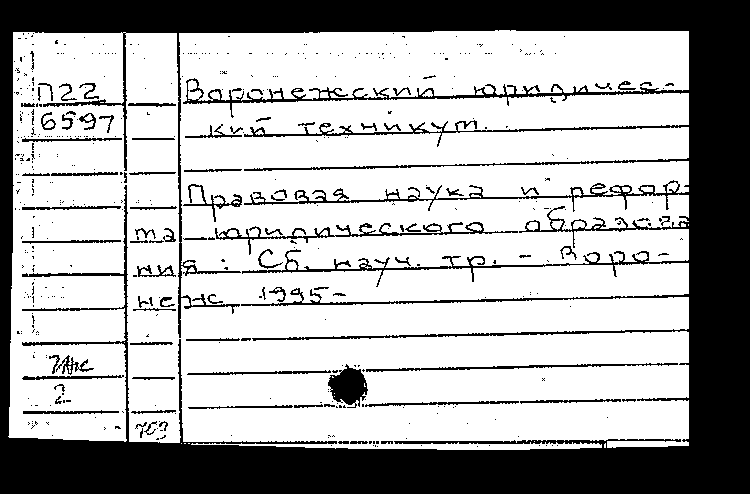 П22
6597
Воронежский юридичес-
кий техникум.
Правовая наука и рефор-
ма юридического образова
ния : Сб. науч. тр. - Воро-
неж, 1995-
2
709